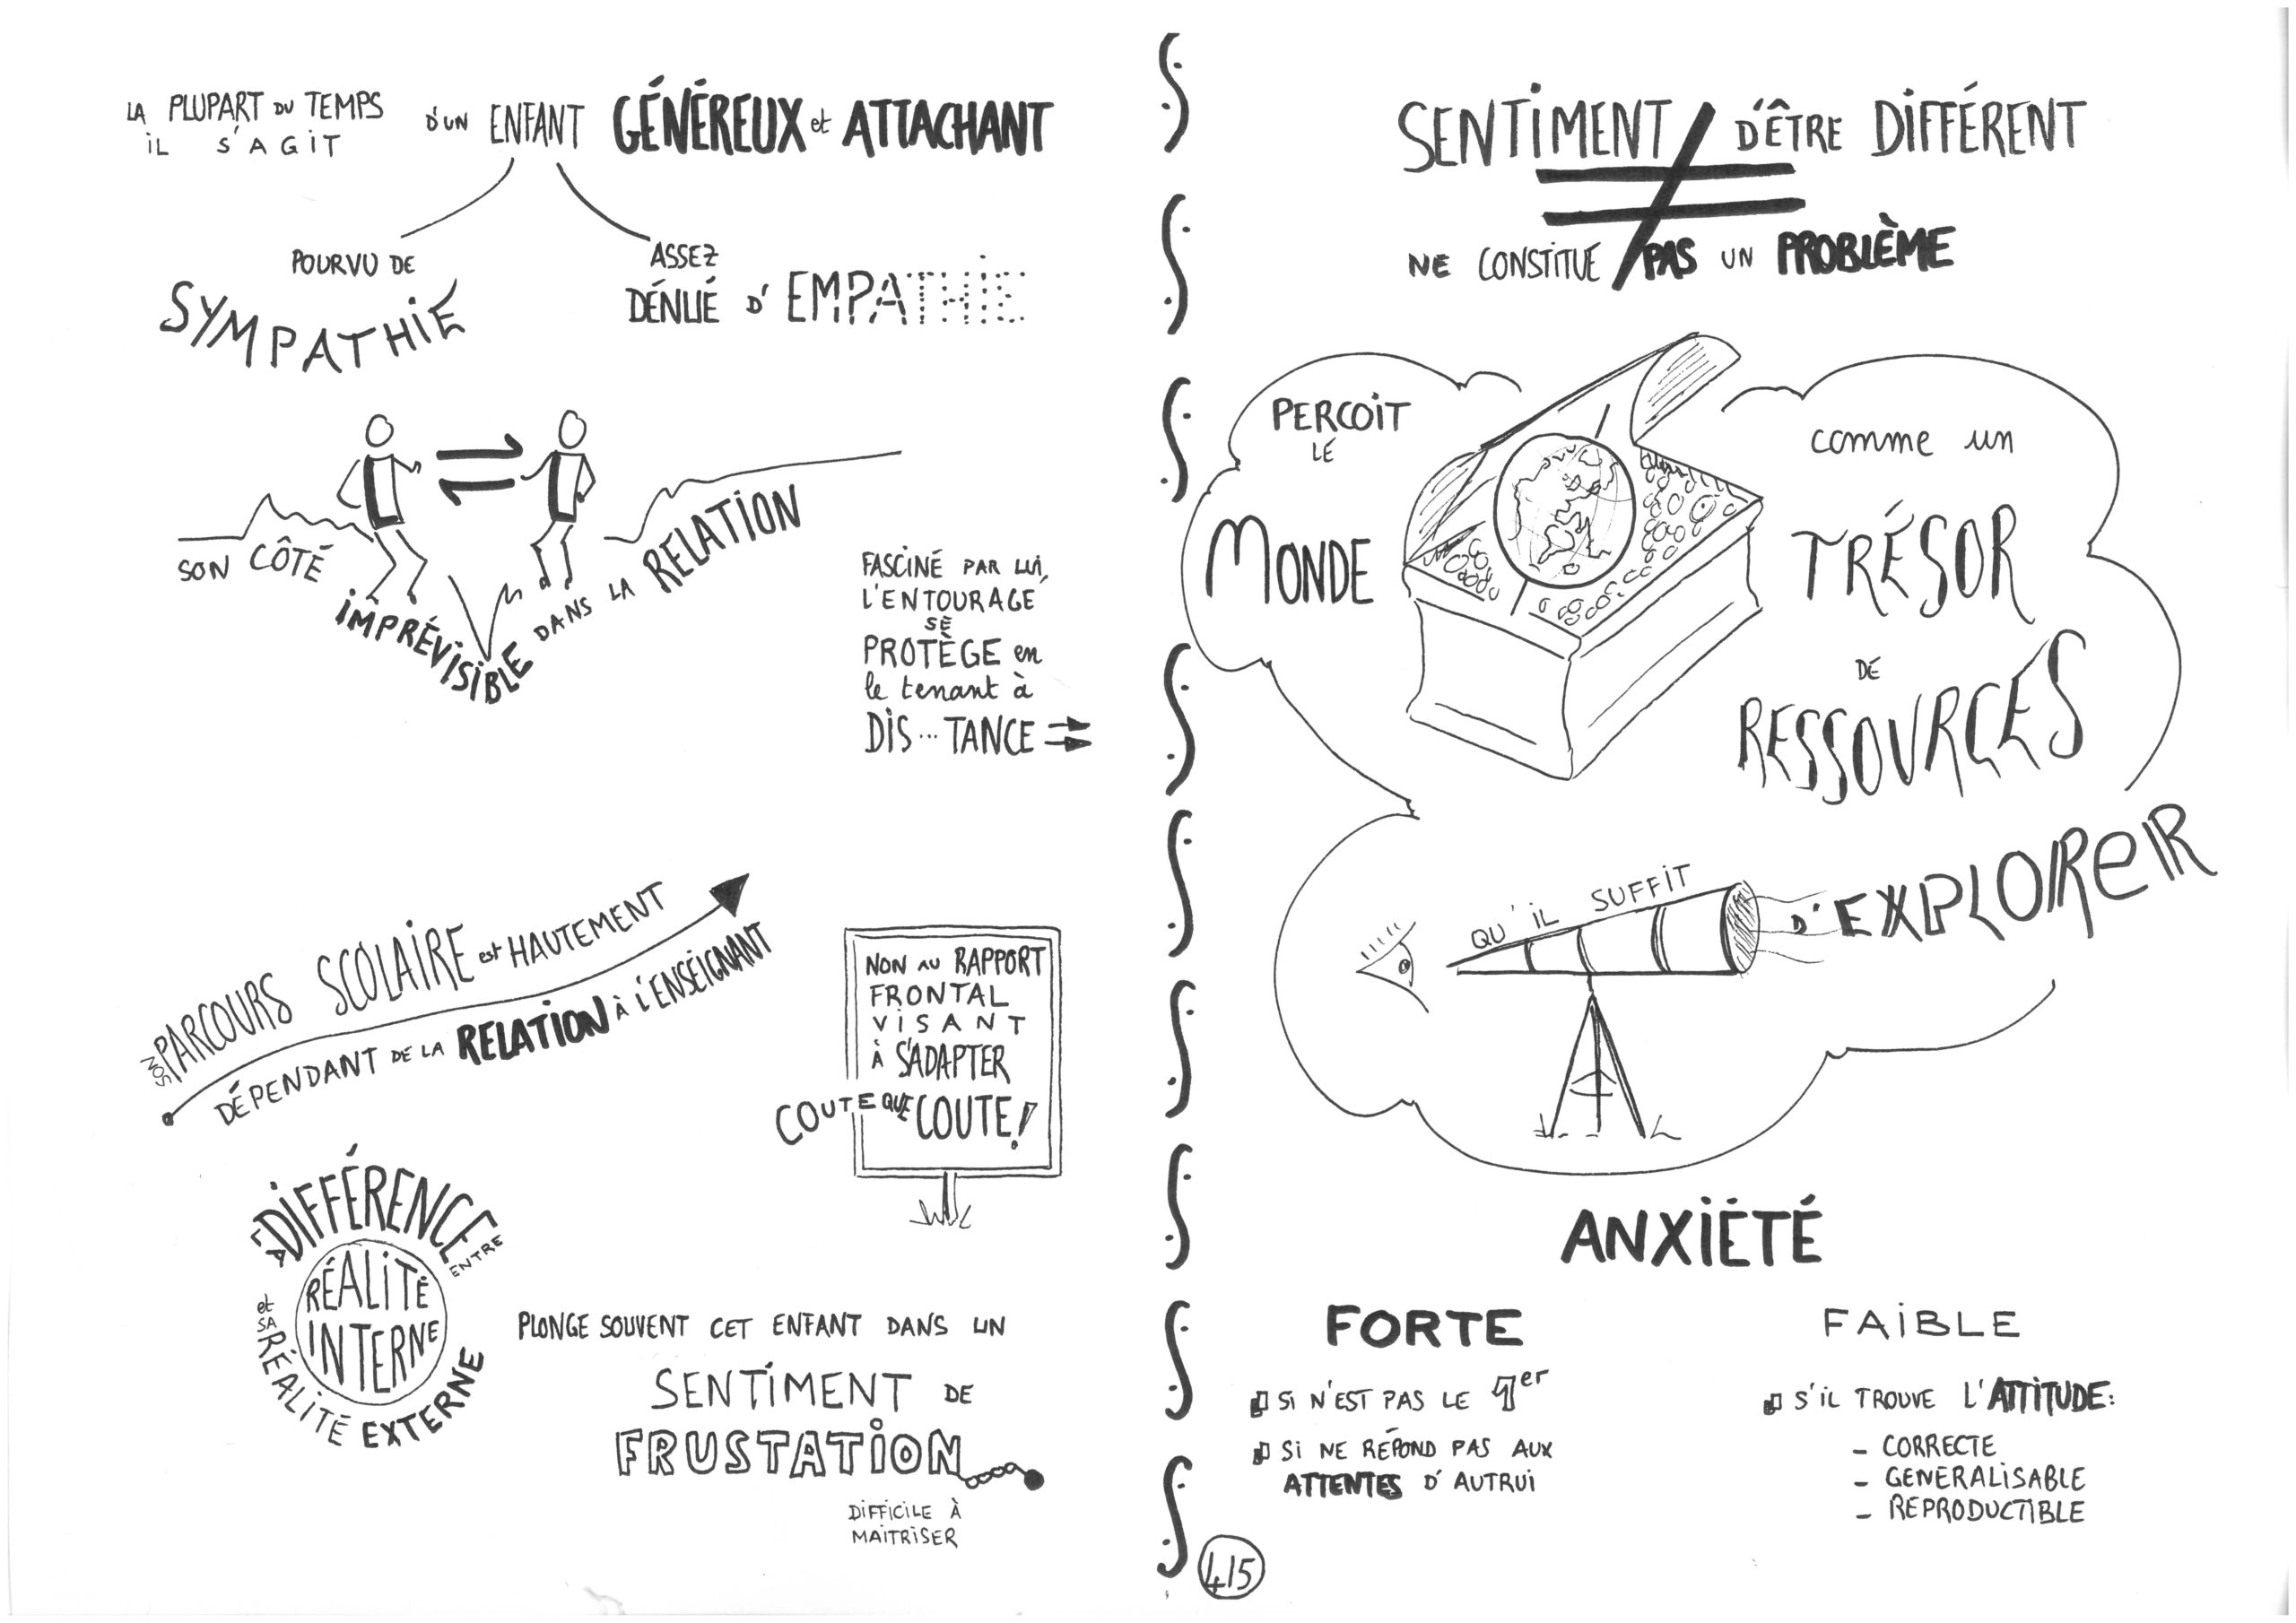 LA PLUPART DU TEMPS
IL S'AGIT
D'UN ENFANT GÉNÉREUX et ATTACHANT
POURVU DE
SYMPATHIE
ASSEZ
DÉNUÉ D'EMPATHIE
SON CÔTÉ IMPRÉVISIBLE DANS LA RELATION
FASCINÉ PAR LUI,
L'ENTOURAGE
SE
PROTÈGE en
le tenant à
DIS...TANCE
SON PARCOURS SCOLAIRE est HAUTEMENT
DÉPENDANT DE LA RELATION À L'ENSEIGNANT
NON AU RAPPORT
FRONTAL
VISANT
À S'ADAPTER
COUTE QUE COUTE!
LA DIFFÉRENCE ENTRE
RÉALITÉ
INTERNE
et SA RÉALITÉ EXTERNE
PLONGE SOUVENT CET ENFANT DANS UN
SENTIMENT DE
FRUSTATION
DIFFICILE À
MAITRISER
SENTIMENT D'ÊTRE DIFFÉRENT
≠
NE CONSTITUE PAS UN PROBLÈME
PERCOIT
LE
MONDE
comme un
TRÉSOR
DE
RESSOURCES
QU'IL SUFFIT
D'EXPLORER
ANXIÉTÉ
FORTE
SI N'EST PAS LE 1er
SI NE RÉPOND PAS AUX
ATTENTES D'AUTRUI
FAIBLE
S'IL TROUVE L'ATTITUDE:
- CORRECTE
- GENERALISABLE
- REPRODUCTIBLE
4/5